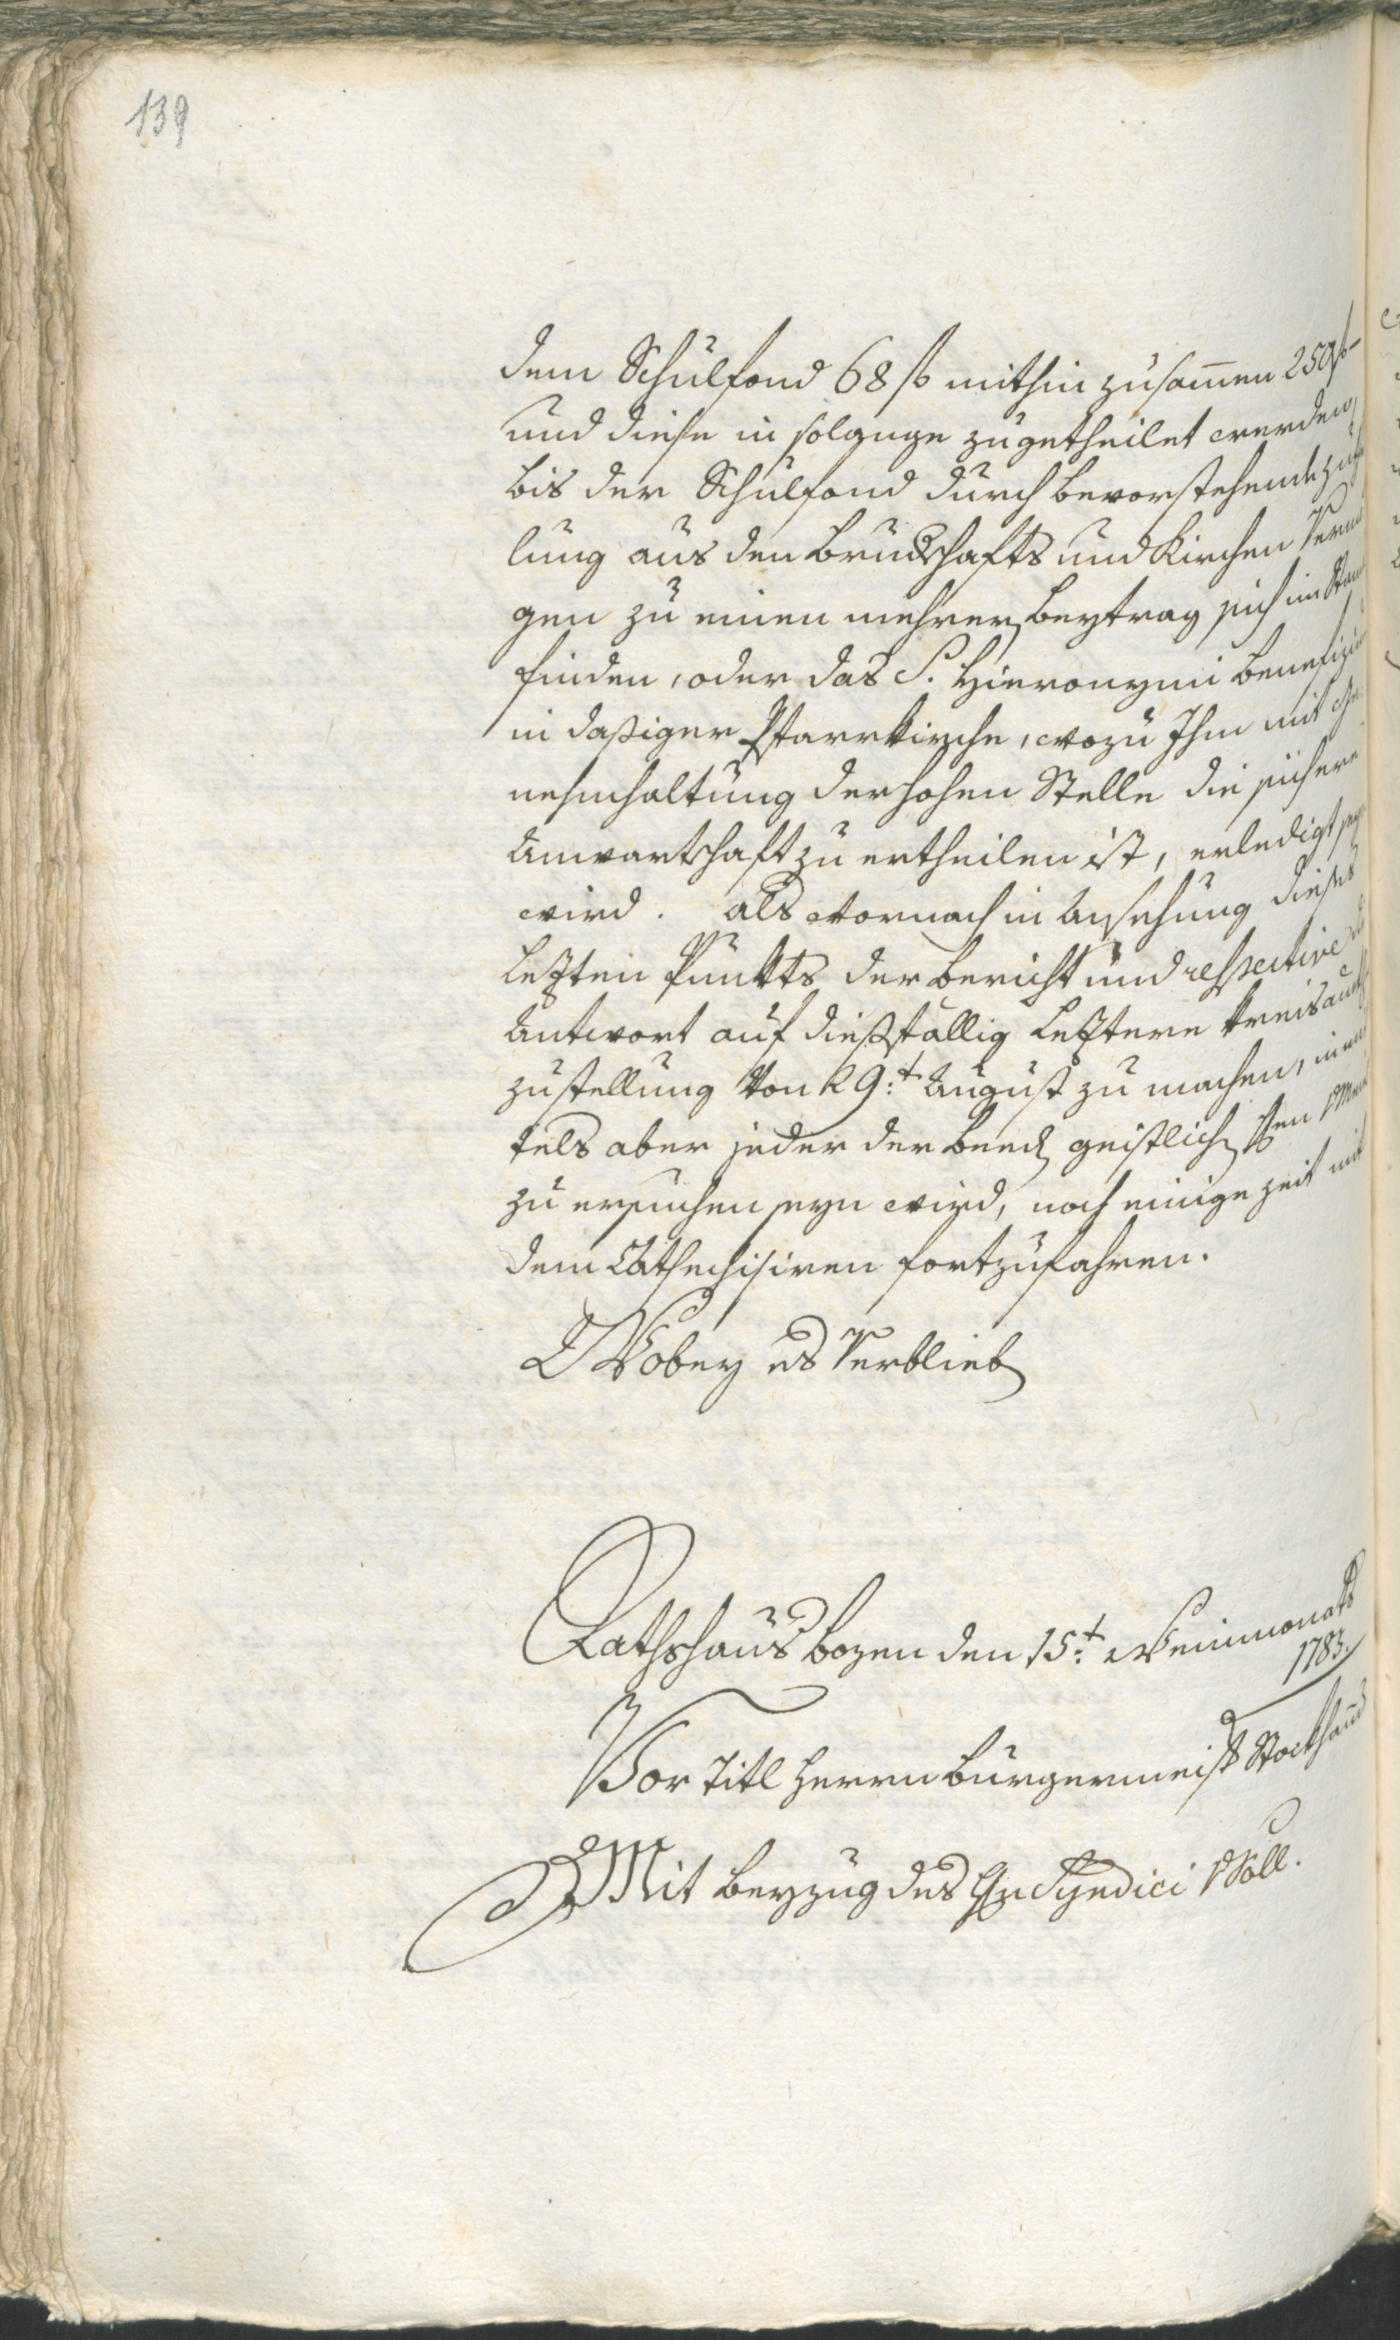 139
dem Schulfond 68 f mithin zusam̄en 250 f
und diese in solange zugetheilet werden,
bis der Schulfond durch bevorstehende
lung aus den Bruderschafts und Kirchen Verm
gen zu einen mehrern Beytrag sich im Stand
finden, oder das S. Hieronymi Benefizium
in daßiger Pfarrkirche, wozu Ihm mit Ge
nehmhaltung der hohen Stelle die sichere
Anwartschaft zu ertheilen ist, erledigt seyn
wird. Als wornach in Ansehung dieses
lezten Punkts der Bericht und respective
Antwort auf dießfällig leztere Kreisamts
zustellung von 29:t August zu machen,
tels aber jeder der beed geistlichen Herren
zu ersuchen seyn wird, noch einige Zeit mit
dem Cathechisiren fortzufahren.
Wobey es verblieb
Rathshaus Bozen den 15:t Weinmonats
1783.
Vor Titl Herrn Burgermeister Stockha
Mit Beyzug des Hn Syndici